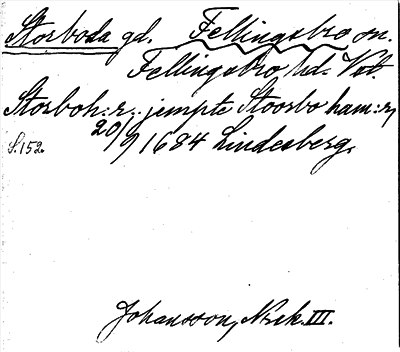 Storboda gd. Fellingsbro sn.
Fellingsbro hd. Vstl.
Storboh:r: jempte Stoorbo ham:r,
20/9 1684 Lindesberg.
S. 152
Johansson, Nrik. III.